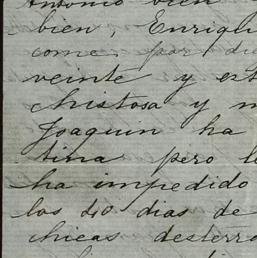 Antonio bien
bien, Enriqu
come por dia
veinte y est
chistosa y m
Joaquin ha
tina pero l
ha impedido
los 40 dias de
chicas desterr